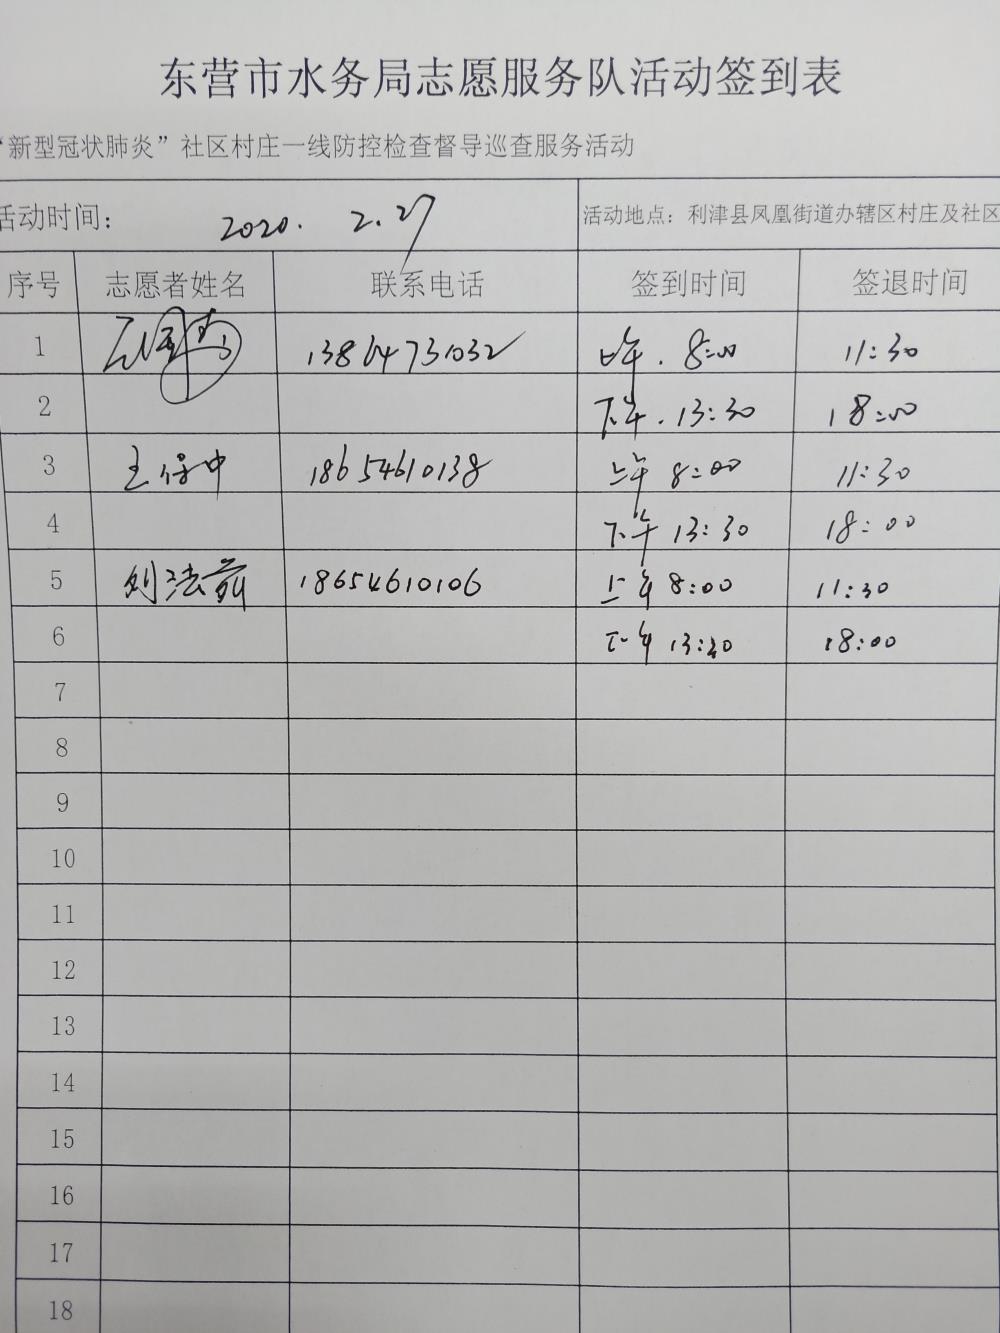 东营市水务局志愿服务队活动签到表
“新型冠状肺炎”社区村庄一线防控检查督导巡查服务活动
活动时间： 2020. 2.27 活动地点：利津县凤凰街道办辖区村庄及社区
序号 志愿者姓名 联系电话 签到时间 签退时间
1 13864731032 上午. 8:00 11:30
2 下午. 13:30 18:00
3 王保中 18654610138 上午 8:00 11:30
4 下午 13:30 18:00
5 刘法 18654610106 上午 8:00 11:30
6 下午 13:30 18:00
7
8
9
10
11
12
13
14
15
16
17
18